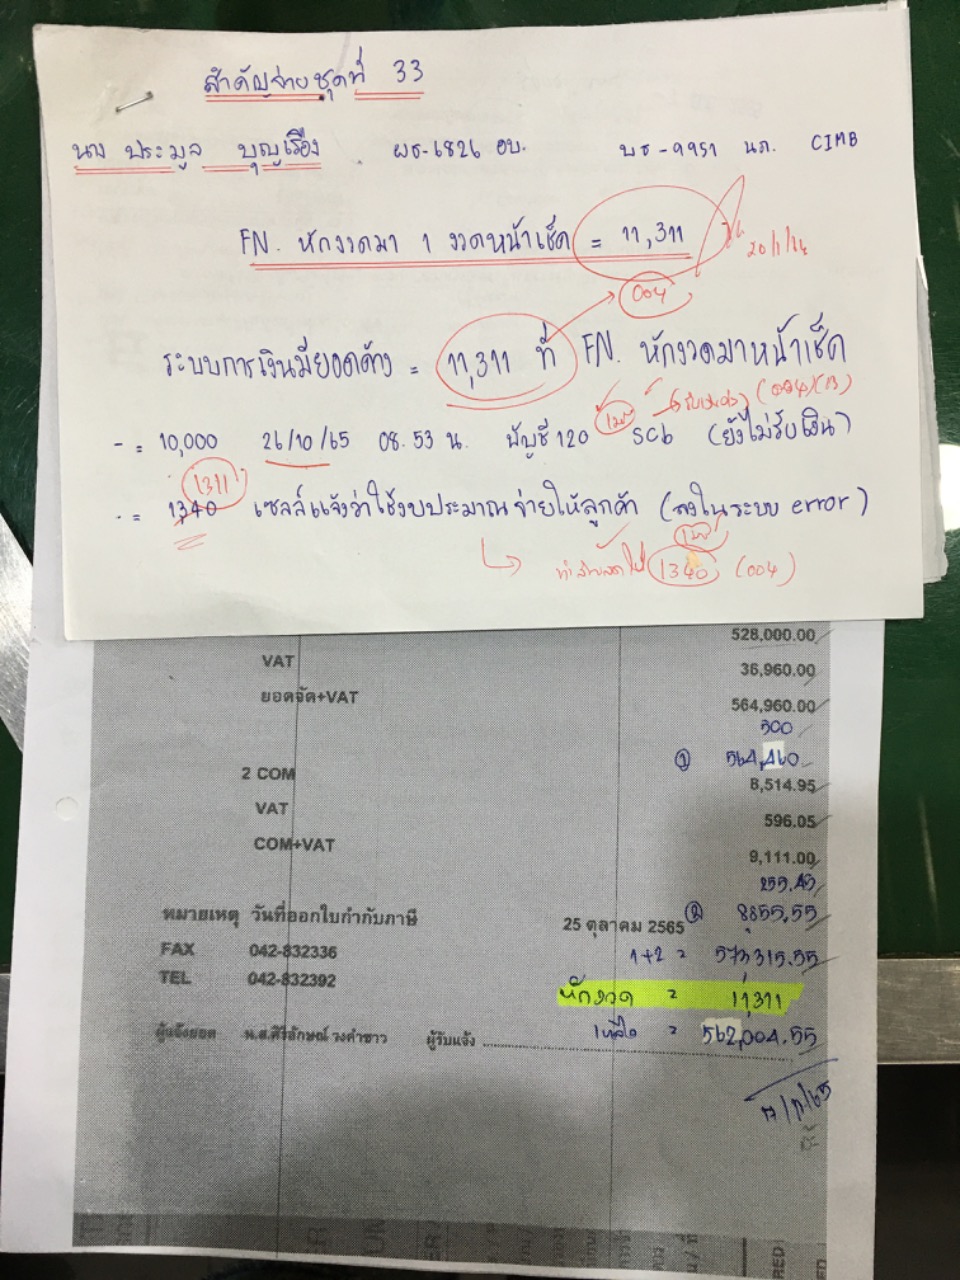 สำคัญจ่ายชุดที่ 33
นาง ประมูล บุญเรือง ผธ-6826 อบ. บธ-9951 นภ. CIMB
FN. หักงวดมา 1 งวดหน้าเช็ค = 11,311
20/1/24
004
ระบบการเงินมียอดค้าง = 11,311 ที่ FN. หักงวดมาหน้าเช็ค
(004)(13)
- = 10,000 26/10/65 08.53 น. บัญชี 120 SCB (ยังไม่รับเงิน)
1311
- = 1340 เซลล์แจ้งว่าใช้งบประมาณจ่ายให้ลูกค้า (ลงในระบบ error)
1340 (004)
528,000.00
VAT 36,960.00
ยอดจัด+VAT 564,960.00
500
① 564,460
2 COM 8,514.95
VAT 596.05
COM+VAT 9,111.00
255.45
หมายเหตุ วันที่ออกใบกำกับภาษี 25 ตุลาคม 2565 ② 8855.55
FAX 042-832336 1+2 = 573315.55
TEL 042-832392 หักงวด = 11,311
ผู้แจ้งยอด น.ส.ศิริลักษณ์ วงคำซาว ผู้รับแจ้ง เหลือ = 562,004.55